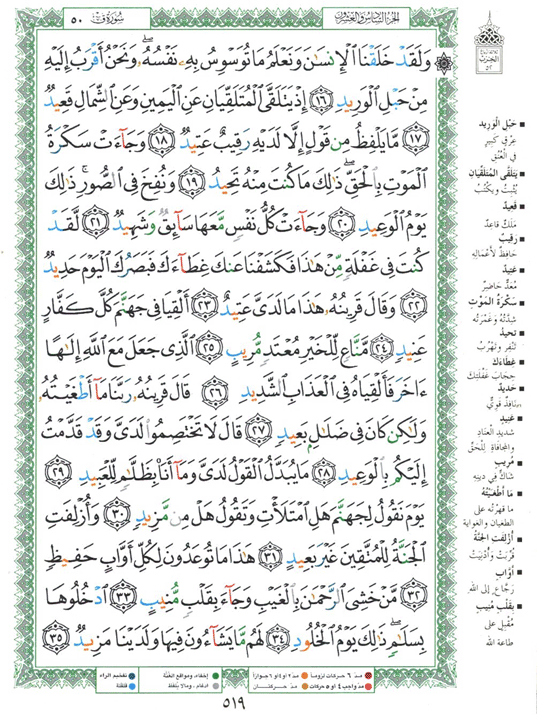 سُورَةُ قٓ ٥٠
الجزء السادس والعشرون
وَلَقَدْ خَلَقْنَا ٱلْإِنسَٰنَ وَنَعْلَمُ مَا تُوَسْوِسُ بِهِۦ نَفْسُهُۥ ۖ وَنَحْنُ أَقْرَبُ إِلَيْهِ
مِنْ حَبْلِ ٱلْوَرِيدِ ١٦ إِذْ يَتَلَقَّى ٱلْمُتَلَقِّيَانِ عَنِ ٱلْيَمِينِ وَعَنِ ٱلشِّمَالِ قَعِيدٌ
١٧ مَّا يَلْفِظُ مِن قَوْلٍ إِلَّا لَدَيْهِ رَقِيبٌ عَتِيدٌ ١٨ وَجَآءَتْ سَكْرَةُ
ٱلْمَوْتِ بِٱلْحَقِّ ۖ ذَٰلِكَ مَا كُنتَ مِنْهُ تَحِيدُ ١٩ وَنُفِخَ فِى ٱلصُّورِ ۚ ذَٰلِكَ
يَوْمُ ٱلْوَعِيدِ ٢٠ وَجَآءَتْ كُلُّ نَفْسٍ مَّعَهَا سَآئِقٌ وَشَهِيدٌ ٢١ لَّقَدْ
كُنتَ فِى غَفْلَةٍ مِّنْ هَٰذَا فَكَشَفْنَا عَنكَ غِطَآءَكَ فَبَصَرُكَ ٱلْيَوْمَ حَدِيدٌ
٢٢ وَقَالَ قَرِينُهُۥ هَٰذَا مَا لَدَىَّ عَتِيدٌ ٢٣ أَلْقِيَا فِى جَهَنَّمَ كُلَّ كَفَّارٍ
عَنِيدٍ ٢٤ مَّنَّاعٍ لِّلْخَيْرِ مُعْتَدٍ مُّرِيبٍ ٢٥ ٱلَّذِى جَعَلَ مَعَ ٱللَّهِ إِلَٰهًا
ءَاخَرَ فَأَلْقِيَاهُ فِى ٱلْعَذَابِ ٱلشَّدِيدِ ٢٦ قَالَ قَرِينُهُۥ رَبَّنَا مَآ أَطْغَيْتُهُۥ
وَلَٰكِن كَانَ فِى ضَلَٰلٍۭ بَعِيدٍ ٢٧ قَالَ لَا تَخْتَصِمُوا۟ لَدَىَّ وَقَدْ قَدَّمْتُ
إِلَيْكُم بِٱلْوَعِيدِ ٢٨ مَا يُبَدَّلُ ٱلْقَوْلُ لَدَىَّ وَمَآ أَنَا۠ بِظَلَّٰمٍ لِّلْعَبِيدِ ٢٩
يَوْمَ نَقُولُ لِجَهَنَّمَ هَلِ ٱمْتَلَأْتِ وَتَقُولُ هَلْ مِن مَّزِيدٍ ٣٠ وَأُزْلِفَتِ
ٱلْجَنَّةُ لِلْمُتَّقِينَ غَيْرَ بَعِيدٍ ٣١ هَٰذَا مَا تُوعَدُونَ لِكُلِّ أَوَّابٍ حَفِيظٍ
٣٢ مَّنْ خَشِىَ ٱلرَّحْمَٰنَ بِٱلْغَيْبِ وَجَآءَ بِقَلْبٍ مُّنِيبٍ ٣٣ ٱدْخُلُوهَا
بِسَلَٰمٍ ۖ ذَٰلِكَ يَوْمُ ٱلْخُلُودِ ٣٤ لَهُم مَّا يَشَآءُونَ فِيهَا وَلَدَيْنَا مَزِيدٌ ٣٥
الحزب
٥٢
حَبْلِ الْوَرِيد
عِرْقٍ كَبِيرٍ
فِي الْعُنُقِ
يَتَلَقَّى الْمُتَلَقِّيَان
يُثْبِتُ وَيَكْتُبُ
قَعِيدٌ
مَلَكٌ قَاعِدٌ
رَقِيبٌ
حَافِظٌ لِأَعْمَالِهِ
عَتِيدٌ
مُعَدٌّ حَاضِرٌ
سَكْرَةُ الْمَوْتِ
شِدَّتُهُ وَغَمْرَتُه
تَحِيدُ
تَنْفِرُ وَتَهْرُبُ
غِطَاءَكَ
حِجَابَ غَفْلَتِكَ
حَدِيدٌ
نَافِذٌ قَوِيٌّ
عَنِيدٍ
شَدِيدِ الْعِنَادِ
وَالْمُجَافَاةِ لِلْحَقِّ
مُرِيبٍ
شَاكٍّ فِي دِينِهِ
مَا أَطْغَيْتُهُ
مَا قَهَرْتُهُ عَلَى
الطُّغْيَانِ وَالْغَوَايَةِ
أُزْلِفَتِ الْجَنَّةُ
قُرِّبَتْ وَأُدْنِيَتْ
أَوَّابٍ
رَجَّاعٍ إِلَى اللهِ
بِقَلْبٍ مُنِيبٍ
مُقْبِلٍ عَلَى
طَاعَةِ اللهِ
مدّ ٦ حركات لزوماً
مدّ ٢ أو ٤ أو ٦ جوازاً
إخفاء، ومواقع الغُنَّة
تفخيم الراء
مدّ واجب ٤ أو ٥ حركات
مدّ حركتان
ادغام، وما لا يُلفظ
قلقلة
٥١٩